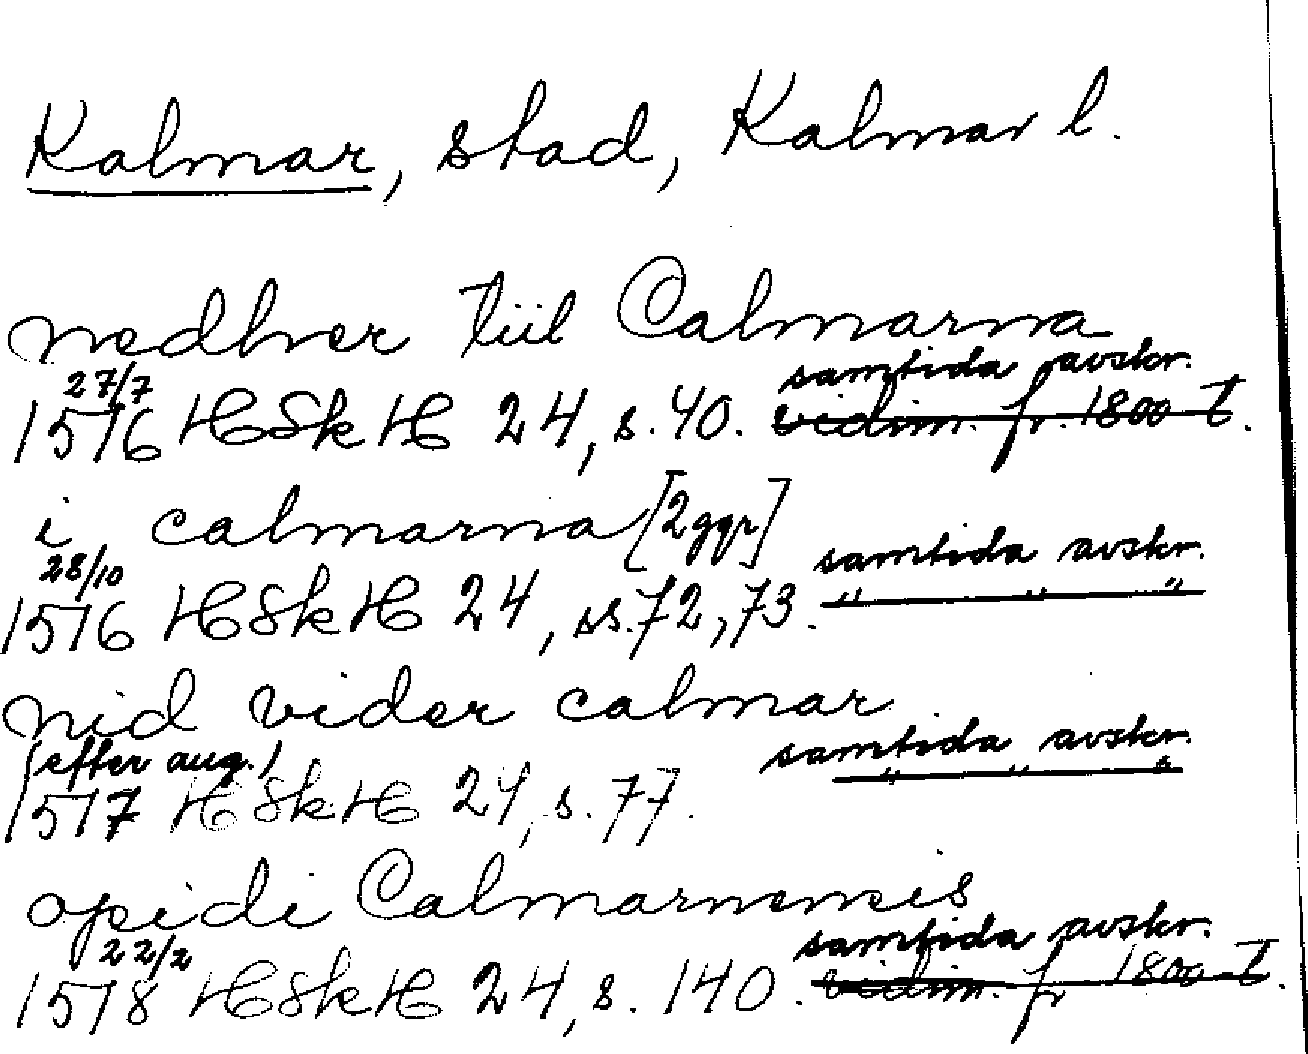 Kalmar, stad, Kalmar l.
nedhver tiil Calmarna
27/7 samtida avskr.
1576 HSkH 24, s. 40. vidim. fr. 1800 t.
i calmarna [2ggr]
28/10 samtida avskr.
1576 HSkH 24, ss. 72, 73. " " "
nid vider calmar
(efter aug.) samtida avskr.
1577 HSkH 24, s. 77. " " "
opidi Calmarnensis
22/2 samtida avskr.
1578 HSkH 24, s. 140. vidim. fr 1800 t.